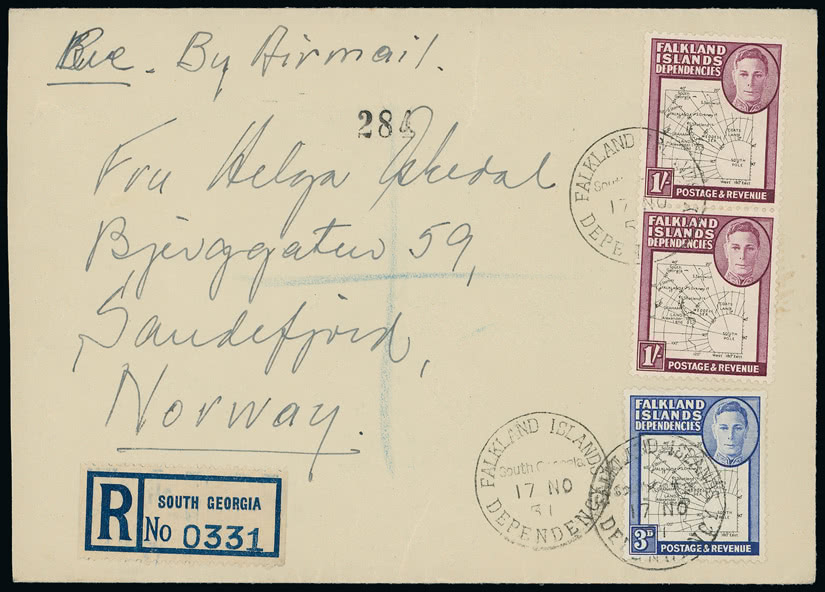 Rec. By Airmail.
284
Fru Helga Ekedal
Bjerggaten 59,
Sandefjord,
Norway.
R
SOUTH GEORGIA
No 0331
FALKLAND
ISLANDS
DEPENDENCIES
SOUTH POLE
1/-
POSTAGE & REVENUE
FALKLAND
ISLANDS
DEPENDENCIES
SOUTH POLE
1/-
POSTAGE & REVENUE
FALKLAND
ISLANDS
DEPENDENCIES
3D
POSTAGE & REVENUE
FALKLAND
17 NO
FALKLAND ISLANDS
South Georgia
17 NO
51
DEPENDENC
17 NO